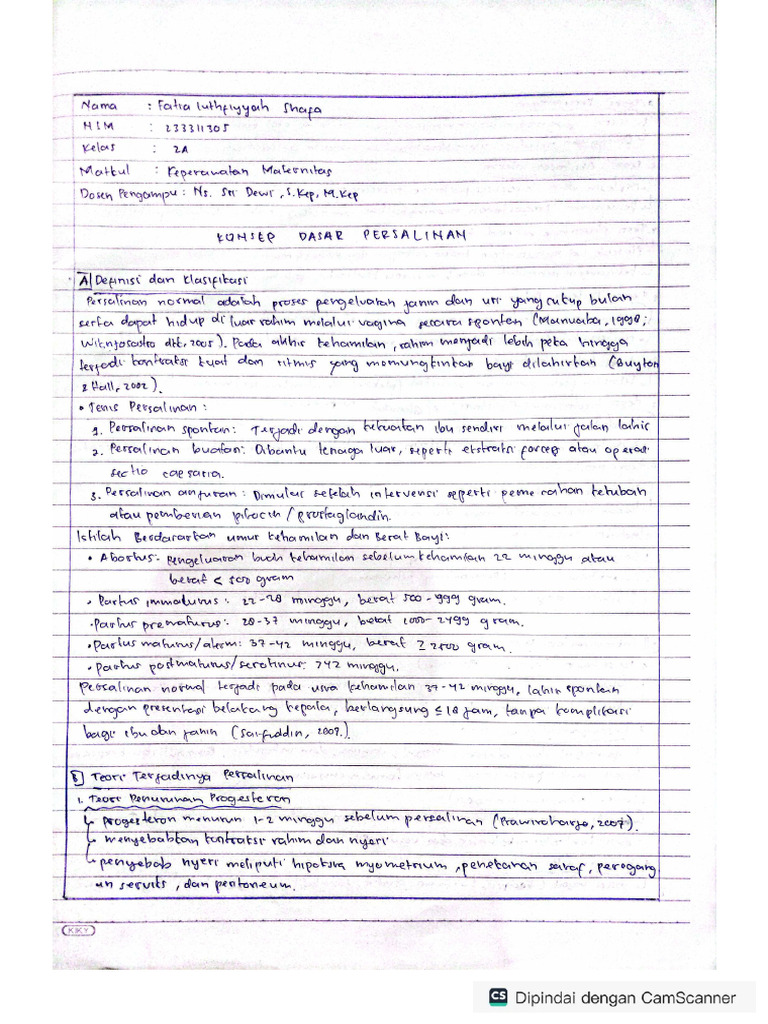 Nama : Fatia Luthfiyyah Shafa
NIM : 233311305
Kelas : 2A
Matkul : Keperawatan Maternitas
Dosen Pengampu : Ns. Sri Dewi, S.Kep, M.Kep
KONSEP DASAR PERSALINAN
A Definisi dan Klasifikasi
Persalinan normal adalah proses pengeluaran janin dan uri yang cukup bulan
serta dapat hidup di luar rahim melalui vagina secara spontan (Manuaba, 1998;
Wiknjosastro dkk, 2005). Pada akhir kehamilan, rahim menjadi lebih peka hingga
terjadi kontraksi kuat dan ritmis yang memungkinkan bayi dilahirkan (Guyton
& Hall, 2002).
• Jenis Persalinan :
1. Persalinan spontan : Terjadi dengan kekuatan ibu sendiri melalui jalan lahir
2. Persalinan buatan : Dibantu tenaga luar, seperti ekstraksi forcep atau operasi
sectio caesaria.
3. Persalinan anjuran : Dimulai setelah intervensi seperti pemecahan ketuban
atau pemberian pitocin / prostaglandin.
Istilah Berdasarkan umur kehamilan dan Berat Bayi :
• Abortus : Pengeluaran buah kehamilan sebelum kehamilan 22 minggu atau
berat < 500 gram
• Partus immaturus : 22-28 minggu, berat 500-999 gram.
• Partus prematurus : 28-37 minggu, berat 1000-2499 gram.
• Partus maturus/aterm : 37-42 minggu, berat ≥ 2500 gram.
• Partus postmaturus/serotinus : >42 minggu.
Persalinan normal terjadi pada usia kehamilan 37-42 minggu, lahir spontan
dengan presentasi belakang kepala, berlangsung ≤ 18 jam, tanpa komplikasi
bagi ibu dan janin (Saifuddin, 2009).
B Teori Terjadinya Persalinan
1. Teori Penurunan Progesteron
↳ progesteron menurun 1-2 minggu sebelum persalinan (Prawirohardjo, 2007).
↳ menyebabkan kontraksi rahim dan nyeri
↳ penyebab nyeri meliputi hipoksia myometrium, penekanan saraf, peregang
an serviks, dan peritoneum.
KIKY
CS Dipindai dengan CamScanner